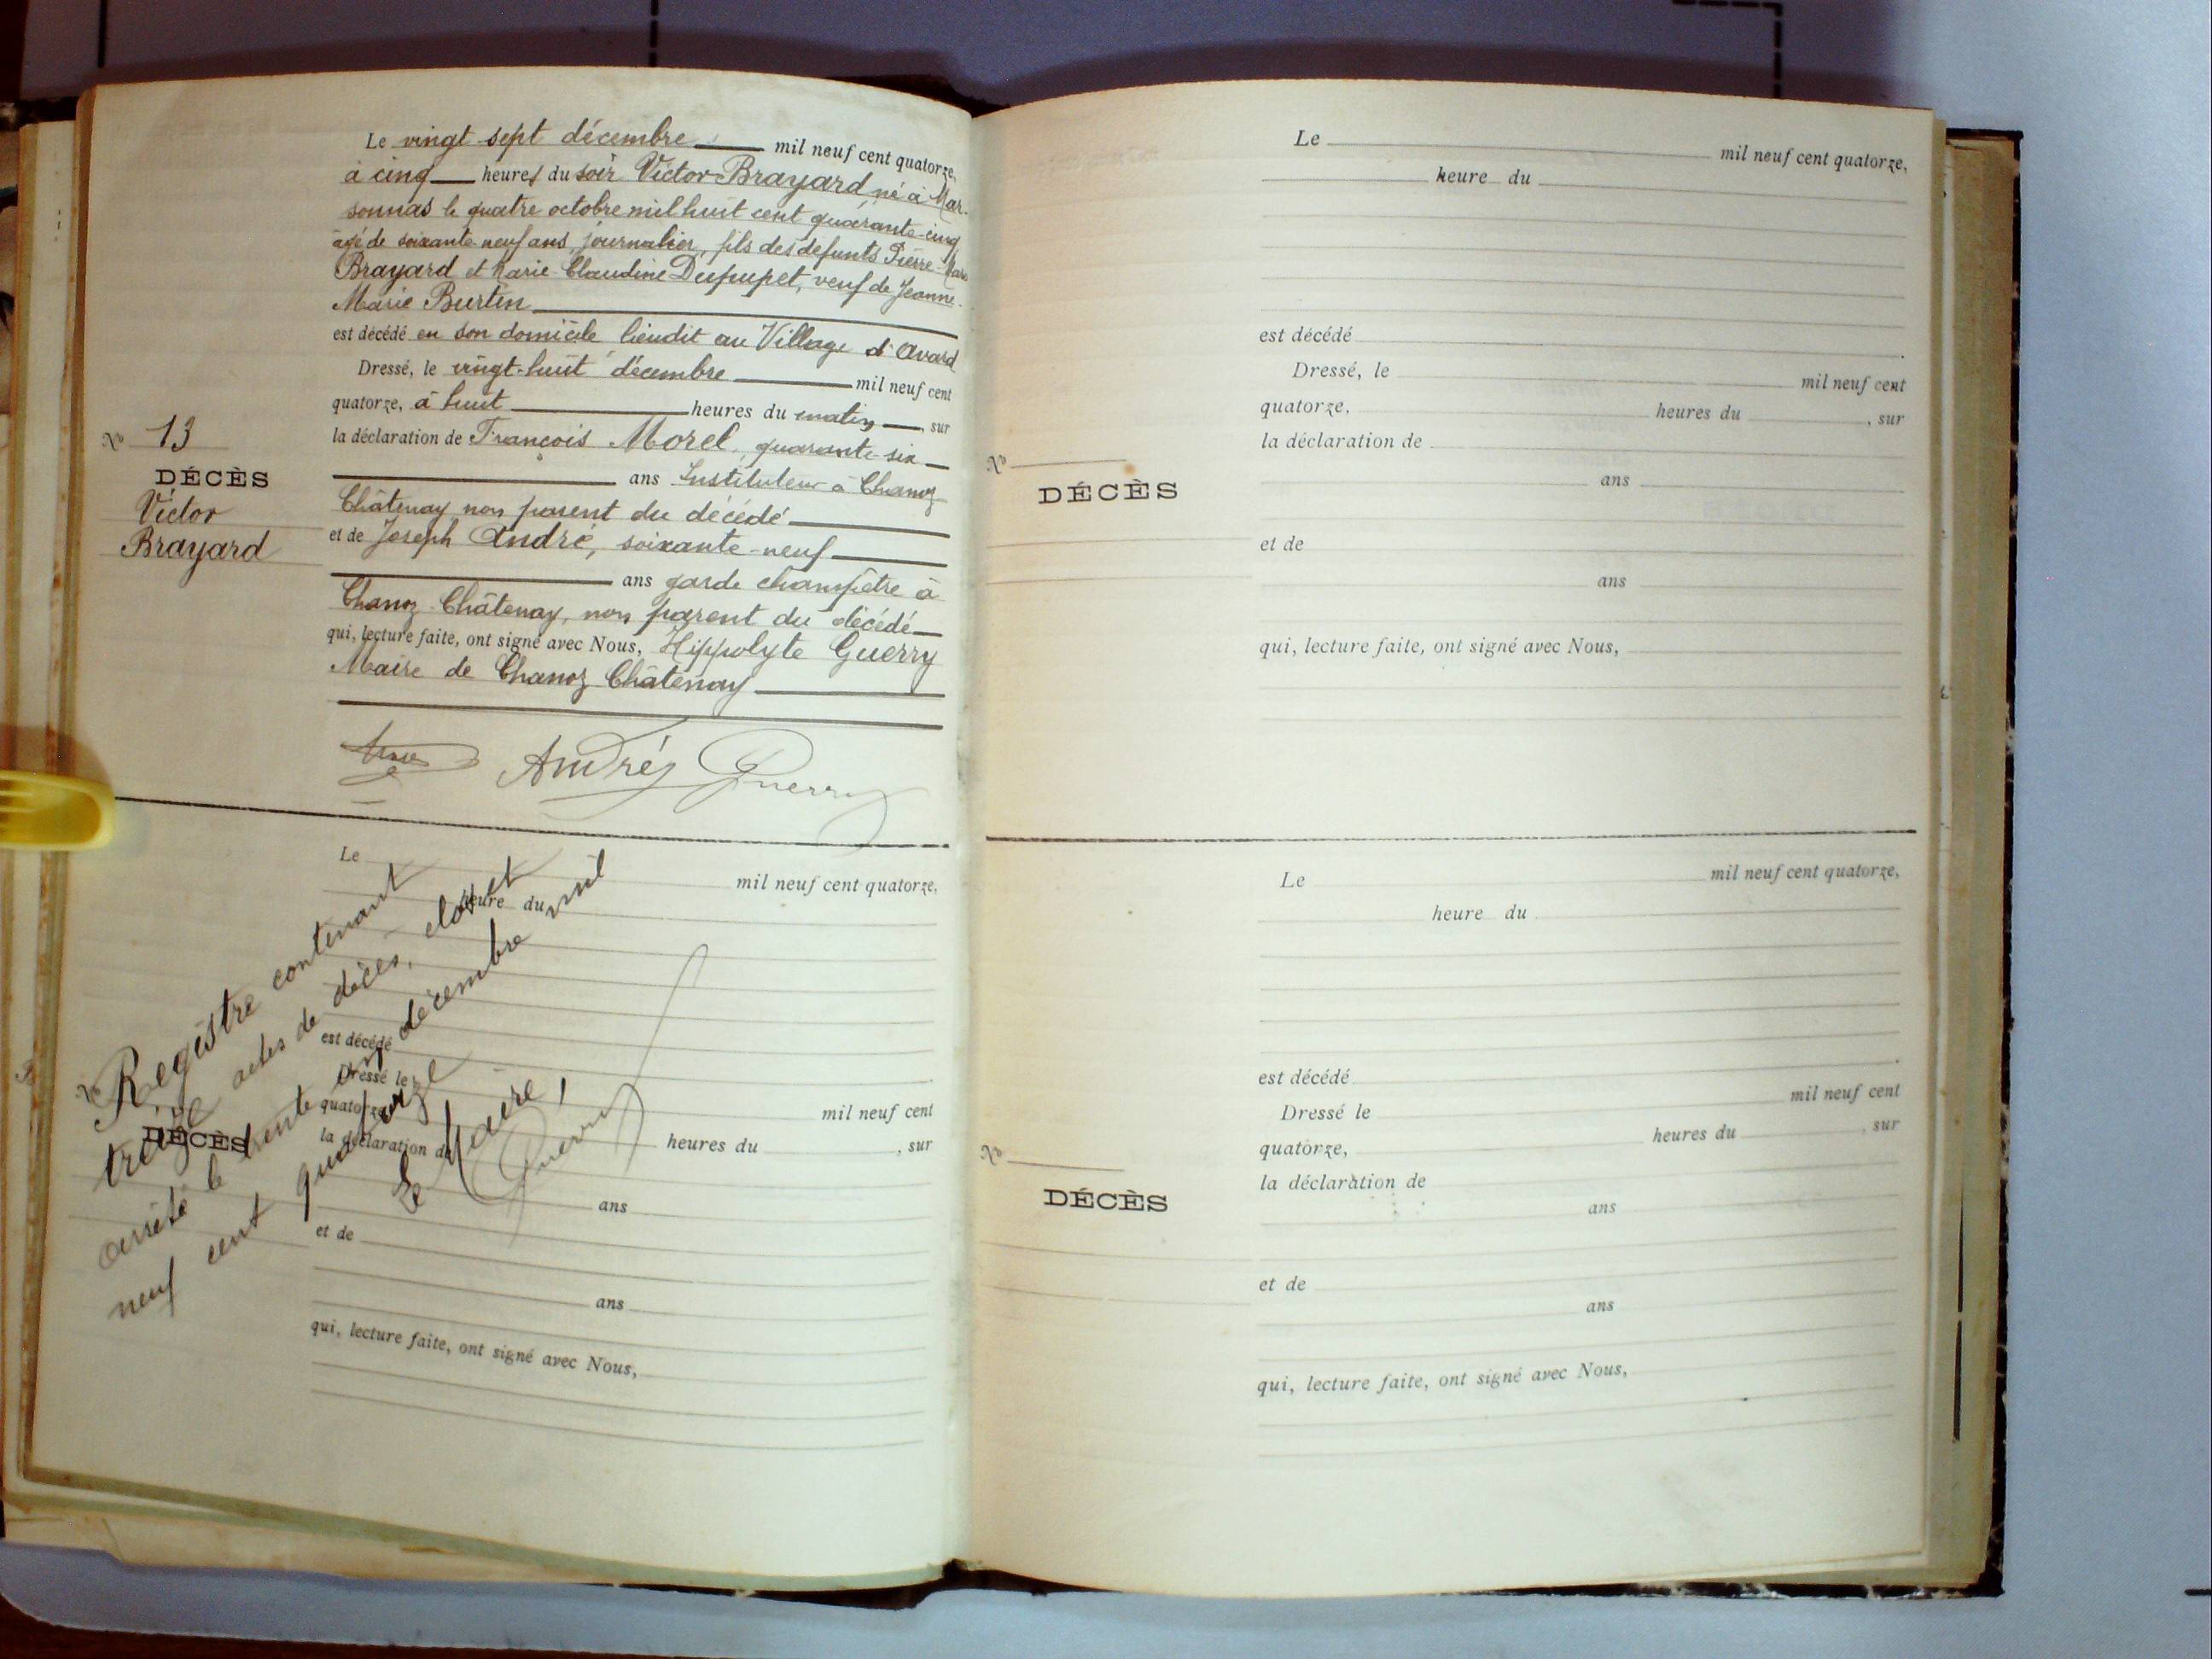 Le vingt-sept décembre mil neuf cent quatorze,
à cinq heures du soir Victor Brayard né à Mar-
sonnas le quatre octobre mil huit cent quarante-cinq
âgé de soixante-neuf ans, journalier, fils des défunts Pierre-Marie
Brayard et Marie-Claudine Dupupet, veuf de Jeanne-
Marie Burtin
est décédé en son domicile lieudit au Village d'Avard
Dressé, le vingt-huit décembre mil neuf cent
quatorze, à huit heures du matin, sur
la déclaration de François Morel, quarante-six
ans Instituteur à Chanoz
Châtenay non parent du décédé
et de Joseph André, soixante-neuf
ans garde champêtre à
Chanoz-Châtenay, non parent du décédé
qui, lecture faite, ont signé avec Nous, Hippolyte Guerry
Maire de Chanoz-Châtenay
André Guerry
N° 13
DÉCÈS
Victor
Brayard
Le mil neuf cent quatorze,
heure du
est décédé
Dressé le mil neuf cent
quatorze, heures du , sur
la déclaration de
ans
et de
ans
qui, lecture faite, ont signé avec Nous,
N°
DÉCÈS
Registre contenant
treize actes de décès, clos et
arrêté le trente et un décembre mil
neuf cent quatorze
Le Maire,
Guerry
Le mil neuf cent quatorze,
heure du
est décédé
Dressé, le mil neuf cent
quatorze, heures du , sur
la déclaration de
ans
et de
ans
qui, lecture faite, ont signé avec Nous,
N°
DÉCÈS
Le mil neuf cent quatorze,
heure du
est décédé
Dressé le mil neuf cent
quatorze, heures du , sur
la déclaration de
ans
et de
ans
qui, lecture faite, ont signé avec Nous,
N°
DÉCÈS